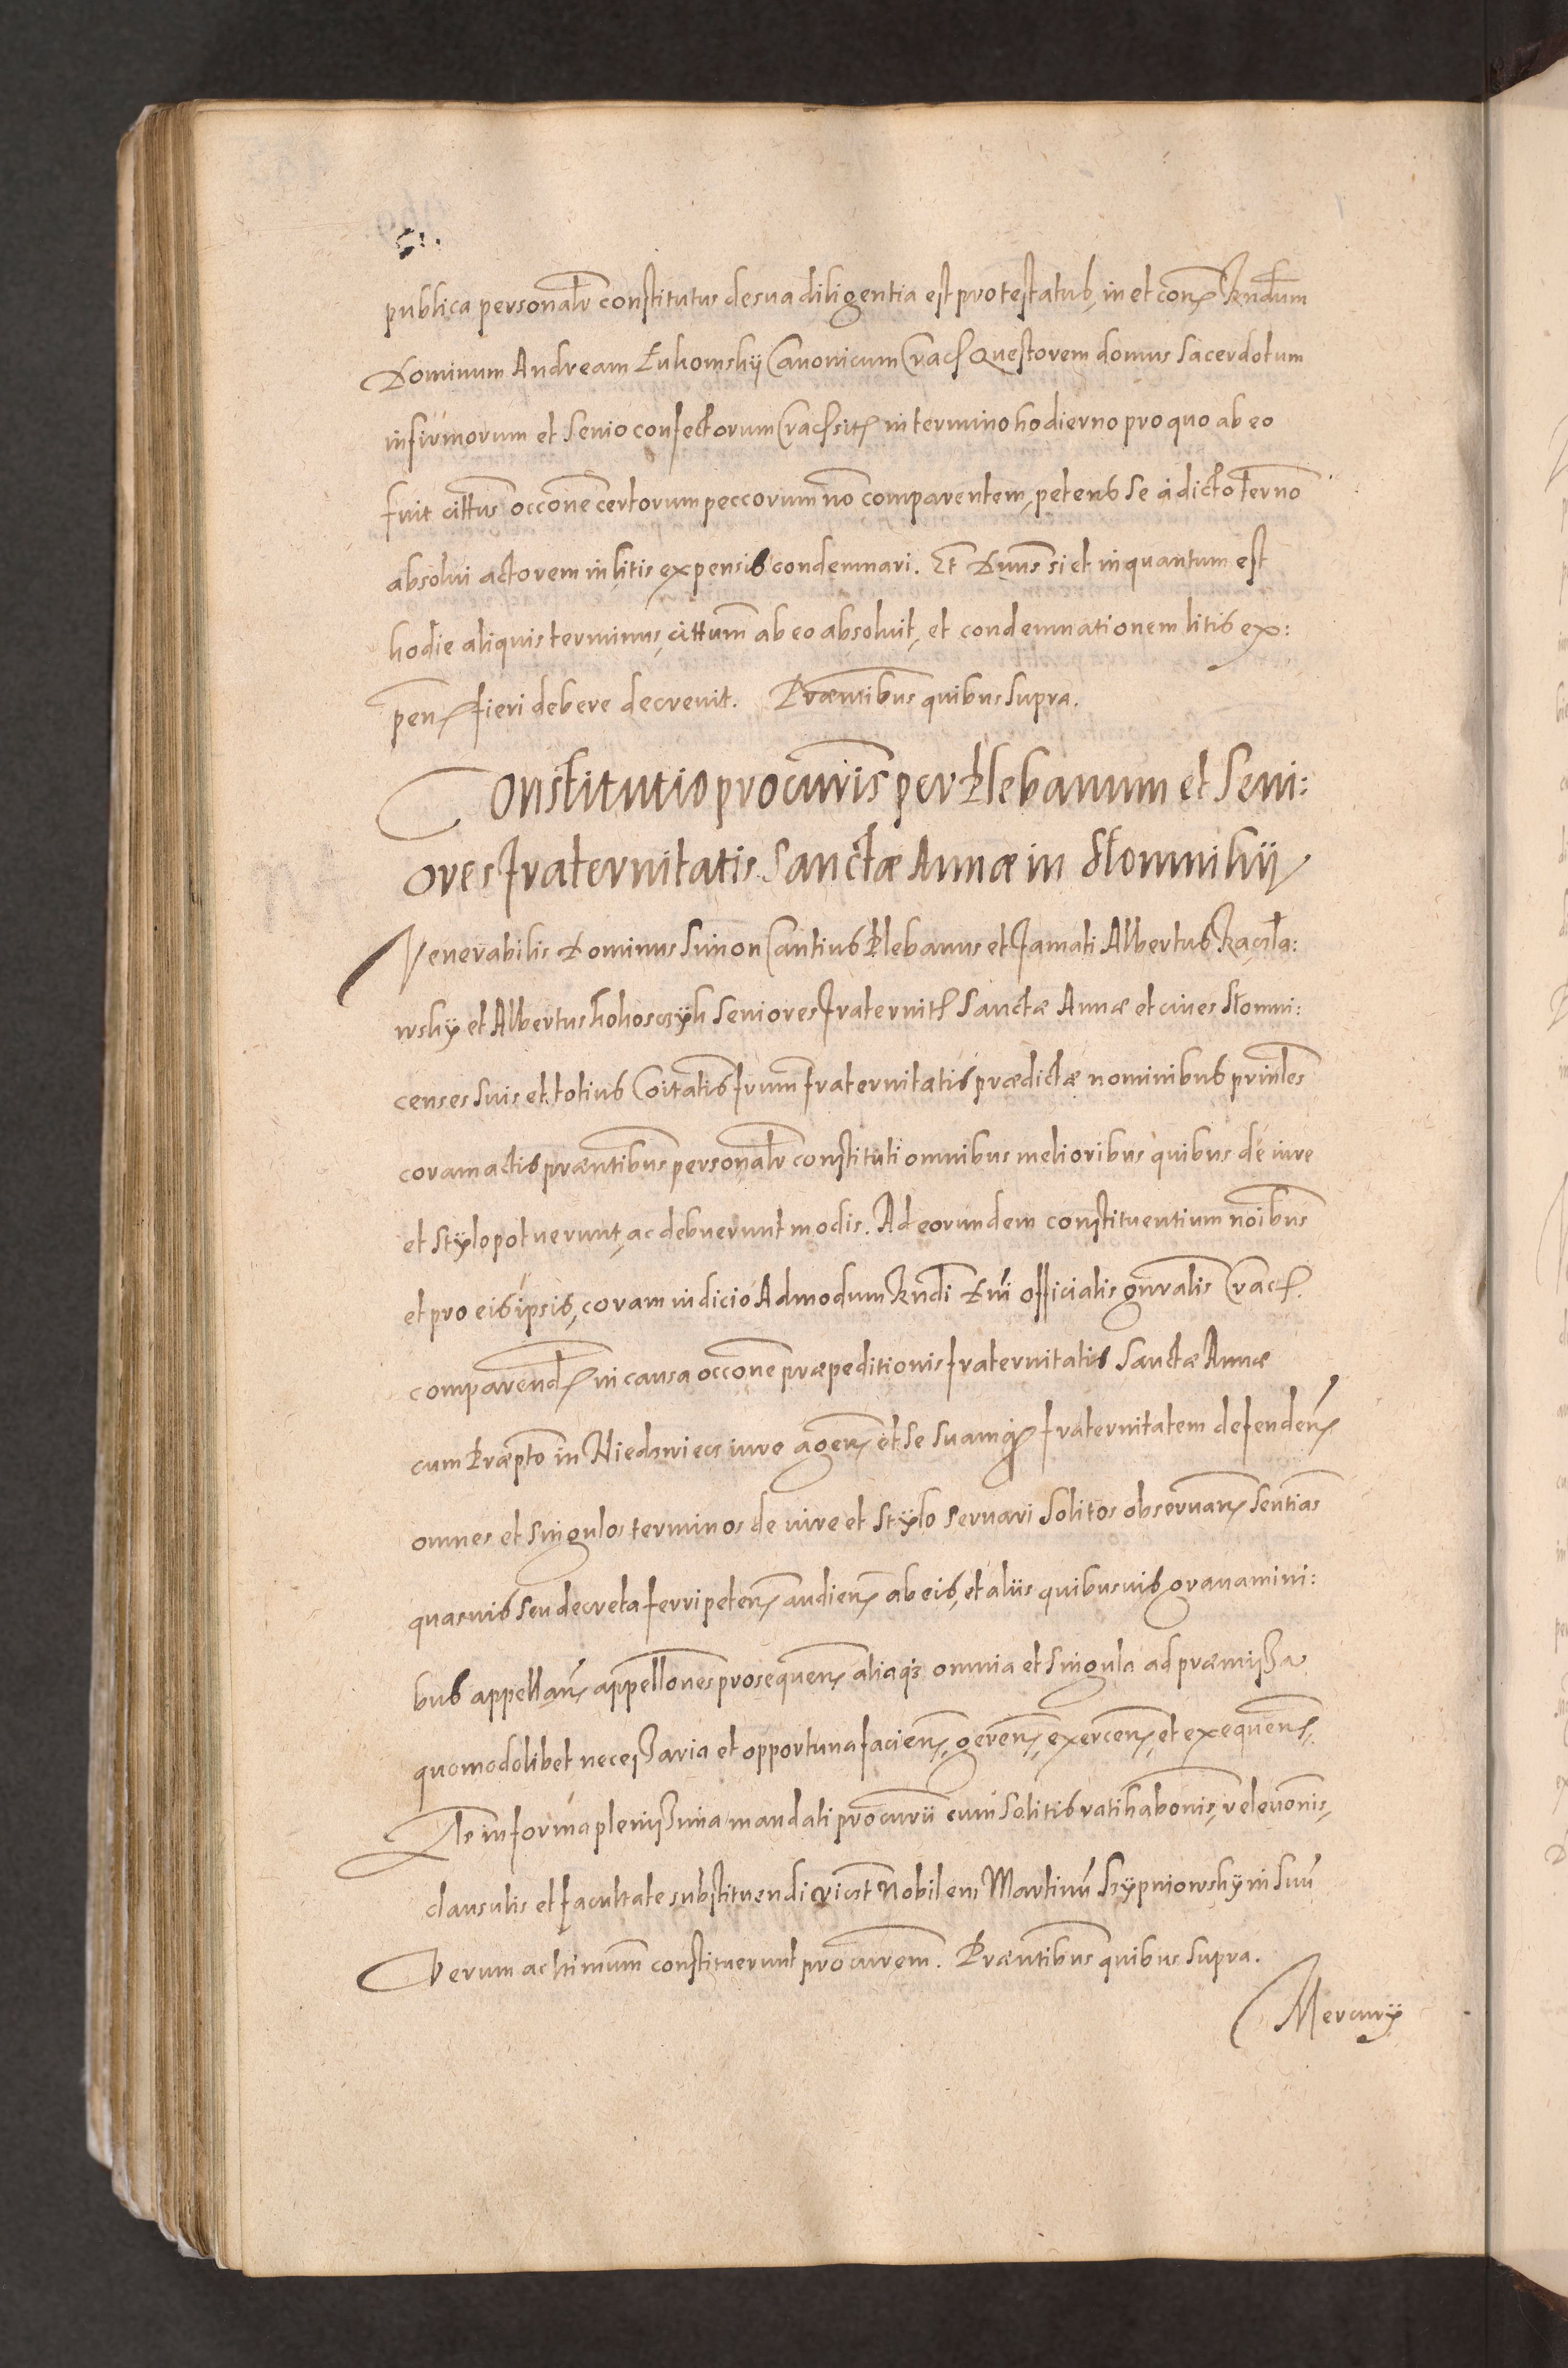 publica personalr constitutus de sua diligentia est protestatus, in et con Rndum
Dominum Andream Łukomskÿ Canonicum Crac Questorem domus Sacerdotum
infirmorum et Senio confectorum Crac sit in termino hodierno pro quo ab eo
fuit cittus occone certorum peccorum no comparentem, petens se à dicto terno
absolui actorem in litis expensis condemnari. Et Dnus si et in quantum est
hodie aliquis terminus, cittum ab eo absoluit, et condemnationem litis ex:
pen fieri debere decreuit. Præntibus quibus Supra.
Constitutio procuris per Plebanum et Seni:
ores fraternitatis Sanctæ Annæ in Słomnikÿ
Venerabilis Dominus Simon Cantius Plebanus et famati Albertus Raczla:
wskÿ et Albertus Kokosczÿk Seniores fraternit Sanctæ Annæ et ciues Słomni:
censes Suis et totius Coitatis frum fraternitatis prædictæ nominibus prinles
coram actis præntibus personalr constituti omnibus melioribus quibus de iure
et Stÿlo potuerunt, ac debuerunt modis. Ad eorundem constituentium noibus
et pro eis ipsis, coram iudicio Admodum Rndi Dni officialis gnralis Crac
comparend in causa occone præpeditionis fraternitatis Sanctæ Annæ
cum Præpto in Niedzwiecz iure agen et se suamq fraternitatem defenden
omnes et Singulos terminos de iure et Stÿlo Seruari Solitos obseruan Sentias
quasuis seu decreta ferri peten audien ab eis, et aliis quibusuis grauamini:
bus appellan appellones prosequen aliaq omnia et Singula ad præmissa
quomodolibet necessaria et opportuna facien, geren, exercen, et exequen
Ac in forma plenissima mandati procurii cum Solitis ratihabonis, releuonis,
clausulis et facultate substituendi Nobilem Martinu Skÿpniowskÿ in Suu
Verum ac ltimum constituerunt procurem. Præntibus quibus Supra.
Mercurÿ